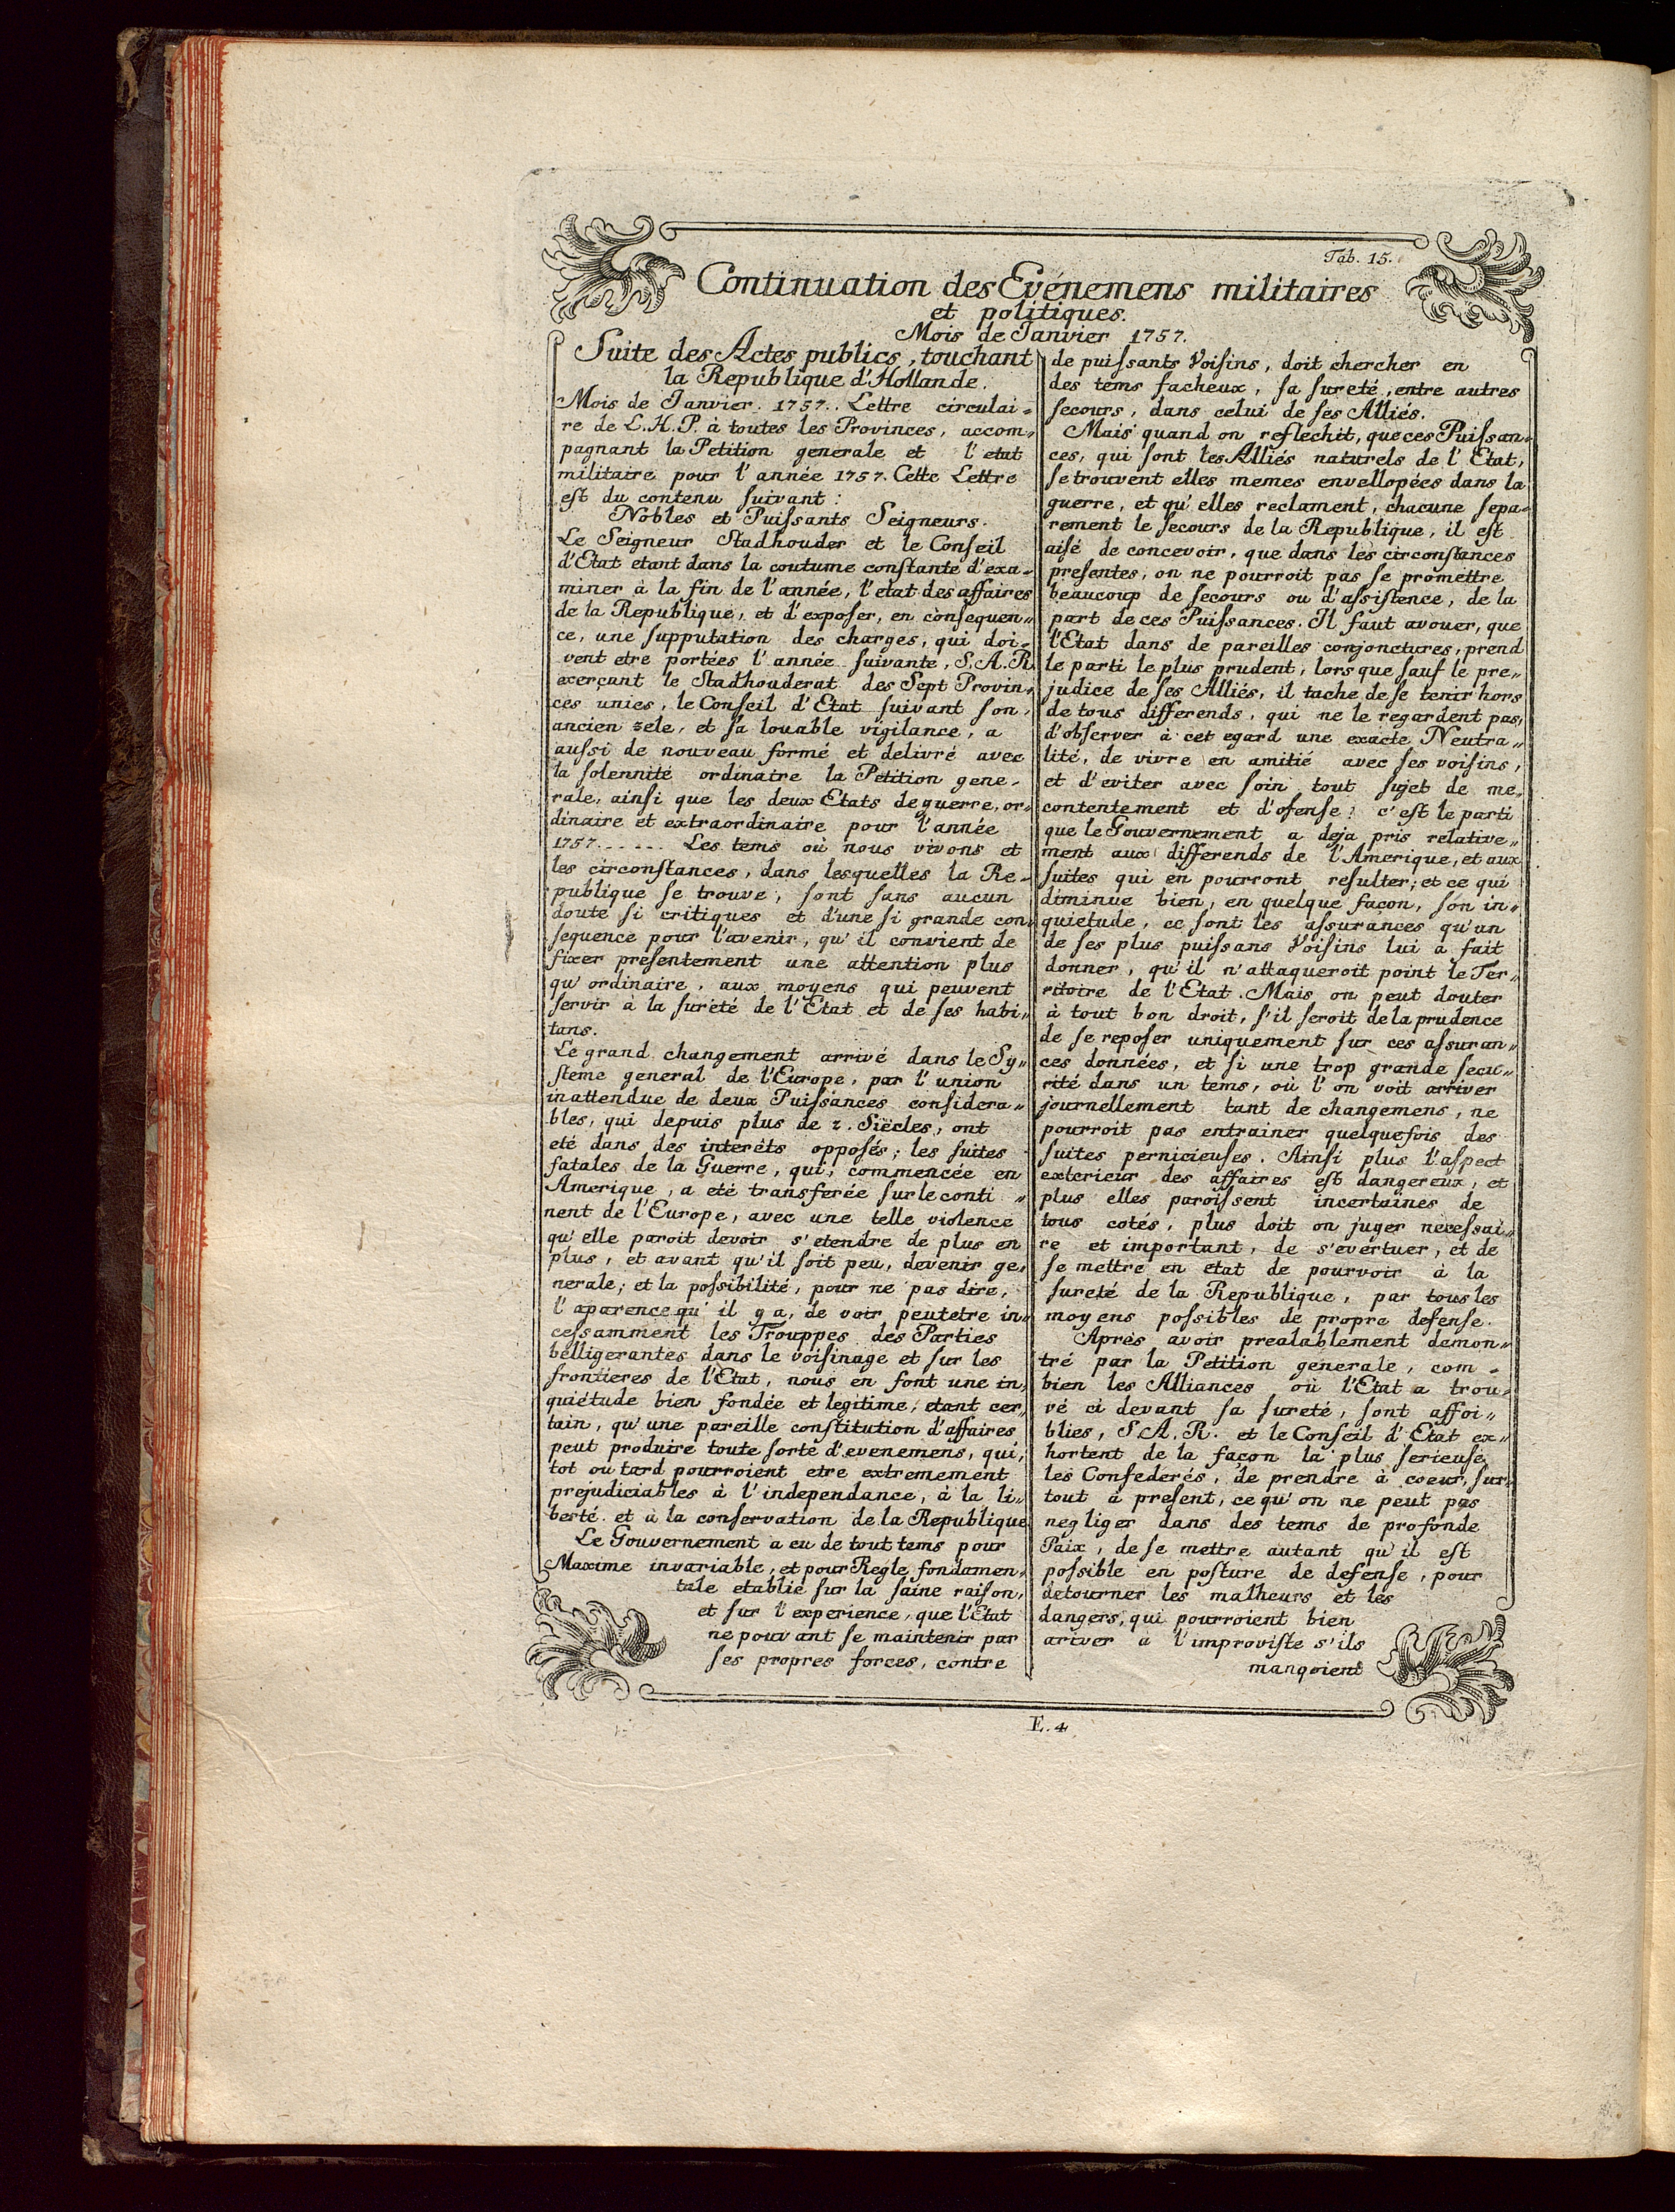 Tab. 15.
Continuation des Evénemens militaires
et politiques.
Mois de Janvier 1757.
Suite des Actes publics, touchant
la Republique d'Hollande.
Mois de Janvier. 1757.. Lettre circulai=
re de L. H. P. à toutes les Provinces, accom„
pagnant la Petition generale et l'etat
militaire pour l'année 1757. Cette Lettre
eſt du contenu ſuivant:
Nobles et Puiſsants Seigneurs.
Le Seigneur Stadhouder et le Conſeil
d'Etat etant dans la coutume conſtante d'exa=
miner à la fin de l'année, l'etat des affaires
de la Republique, et d'expoſer, en conſequen„
ce, une ſupputation des charges, qui doi=
vent etre portées l'année ſuivante, S. A. R.
exerçant le Stadhouderat des Sept Provin„
ces unies, le Conſeil d'Etat ſuivant ſon
ancien zele, et ſa louable vigilance, a
auſsi de nouveau formé et delivré avec
la ſolennité ordinaire la Petition gene=
rale, ainſi que les deux Etats de guerre, or„
dinaire et extraordinaire pour l'année
1757...... Les tems où nous vivons et
les circonſtances, dans lesquelles la Re=
publique ſe trouve, ſont ſans aucun
doute ſi critiques et d'une ſi grande con„
ſequence pour l'avenir, qu'il convient de
fixer preſentement une attention plus
qu'ordinaire, aux moyens qui peuvent
ſervir à la ſureté de l'Etat et de ſes habi„
tans.
Le grand changement arrivé dans le Sy„
ſteme general de l'Europe, par l'union
inattendue de deux Puiſsances conſidera„
bles, qui depuis plus de 2. Siècles, ont
eté dans des interêts oppoſés; les ſuites
fatales de la Guerre, qui, commencée en
Amerique, a eté transferée ſur le conti„
nent de l'Europe, avec une telle violence
qu'elle paroit devoir s'etendre de plus en
plus, et avant qu'il ſoit peu, devenir ge„
nerale; et la poſsibilité, pour ne pas dire,
l'aparence qu'il y a, de voir peutetre in„
ceſsamment les Trouppes des Parties
belligerantes dans le voiſinage et ſur les
frontieres de l'Etat, nous en font une in„
quiétude bien fondée et legitime; etant cer„
tain, qu'une pareille conſtitution d'affaires
peut produire toute ſorte d'evenemens, qui,
tot ou tard pourroient etre extremement
prejudiciables à l'independance, à la li„
berté et à la conſervation de la Republique
Le Gouvernement a eu de tout tems pour
Maxime invariable, et pour Regle fondamen„
tale etablie ſur la ſaine raiſon,
et ſur l'experience, que l'Etat
ne pouvant ſe maintenir par
ſes propres forces, contre
de puiſsants Voiſins, doit chercher en
des tems facheux, ſa ſureté, entre autres
ſecours, dans celui de ſes Alliés.
Mais quand on reflechit, que ces Puiſsan„
ces, qui ſont les Alliés naturels de l'Etat,
ſe trouvent elles memes envellopées dans la
guerre, et qu'elles reclament, chacune ſepa=
rement le ſecours de la Republique, il eſt
aiſé de concevoir, que dans les circonſtances
preſentes, on ne pourroit pas ſe promettre
beaucoup de ſecours ou d'aſsiſtence, de la
part de ces Puiſsances. Il faut avouer, que
l'Etat dans de pareilles conjonctures, prend
le parti le plus prudent, lors que ſauf le pre„
judice de ſes Alliés, il tache de ſe tenir hors
de tous differends, qui ne le regardent pas,
d'obſerver à cet egard une exacte Neutra„
lité, de vivre en amitié avec ſes voiſins,
et d'eviter avec ſoin tout ſujet de me„
contentement et d'ofenſe; c'eſt le parti
que le Gouvernement a deja pris relative„
ment aux differends de l'Amerique, et aux
ſuites qui en pourront reſulter; et ce qui
diminue bien, en quelque façon, ſon in„
quietude, ce ſont les aſsurances qu'un
de ſes plus puiſsans Voiſins lui a fait
donner, qu'il n'attaqueroit point le Ter„
ritoire de l'Etat. Mais on peut douter
à tout bon droit, ſ'il ſeroit de la prudence
de ſe repoſer uniquement ſur ces aſsuran„
ces données, et ſi une trop grande ſecu„
rité dans un tems, où l'on voit arriver
journellement tant de changemens, ne
pourroit pas entrainer quelquefois des
ſuites pernicieuſes. Ainſi plus l'aſpect
exterieur des affaires eſt dangereux, et
plus elles paroiſsent incertaines de
tous cotés, plus doit on juger neceſsai„
re et important, de s'evértuer, et de
ſe mettre en etat de pourvoir à la
ſureté de la Republique, par tous les
moyens poſsibles de propre defenſe.
Aprés avoir prealablement demon„
tré par la Petition generale, com=
bien les Alliances où l'Etat a trou„
vé ci devant ſa ſureté, ſont affoi„
blies, S. A. R. et le Conſeil d'Etat ex„
hortent de la façon la plus ſerieuſe,
les Confederés, de prendre à coeur, ſur„
tout à preſent, ce qu'on ne peut pas
negliger dans des tems de profonde
Paix, de ſe mettre autant qu'il eſt
poſsible en poſture de defenſe, pour
detourner les malheurs et les
dangers, qui pourroient bien
ariver à l'improviſte s'ils
manqoient
E. 4